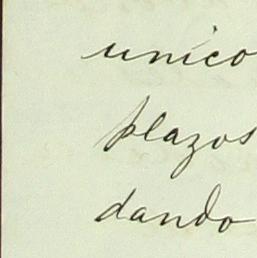 unico
plazos
dando